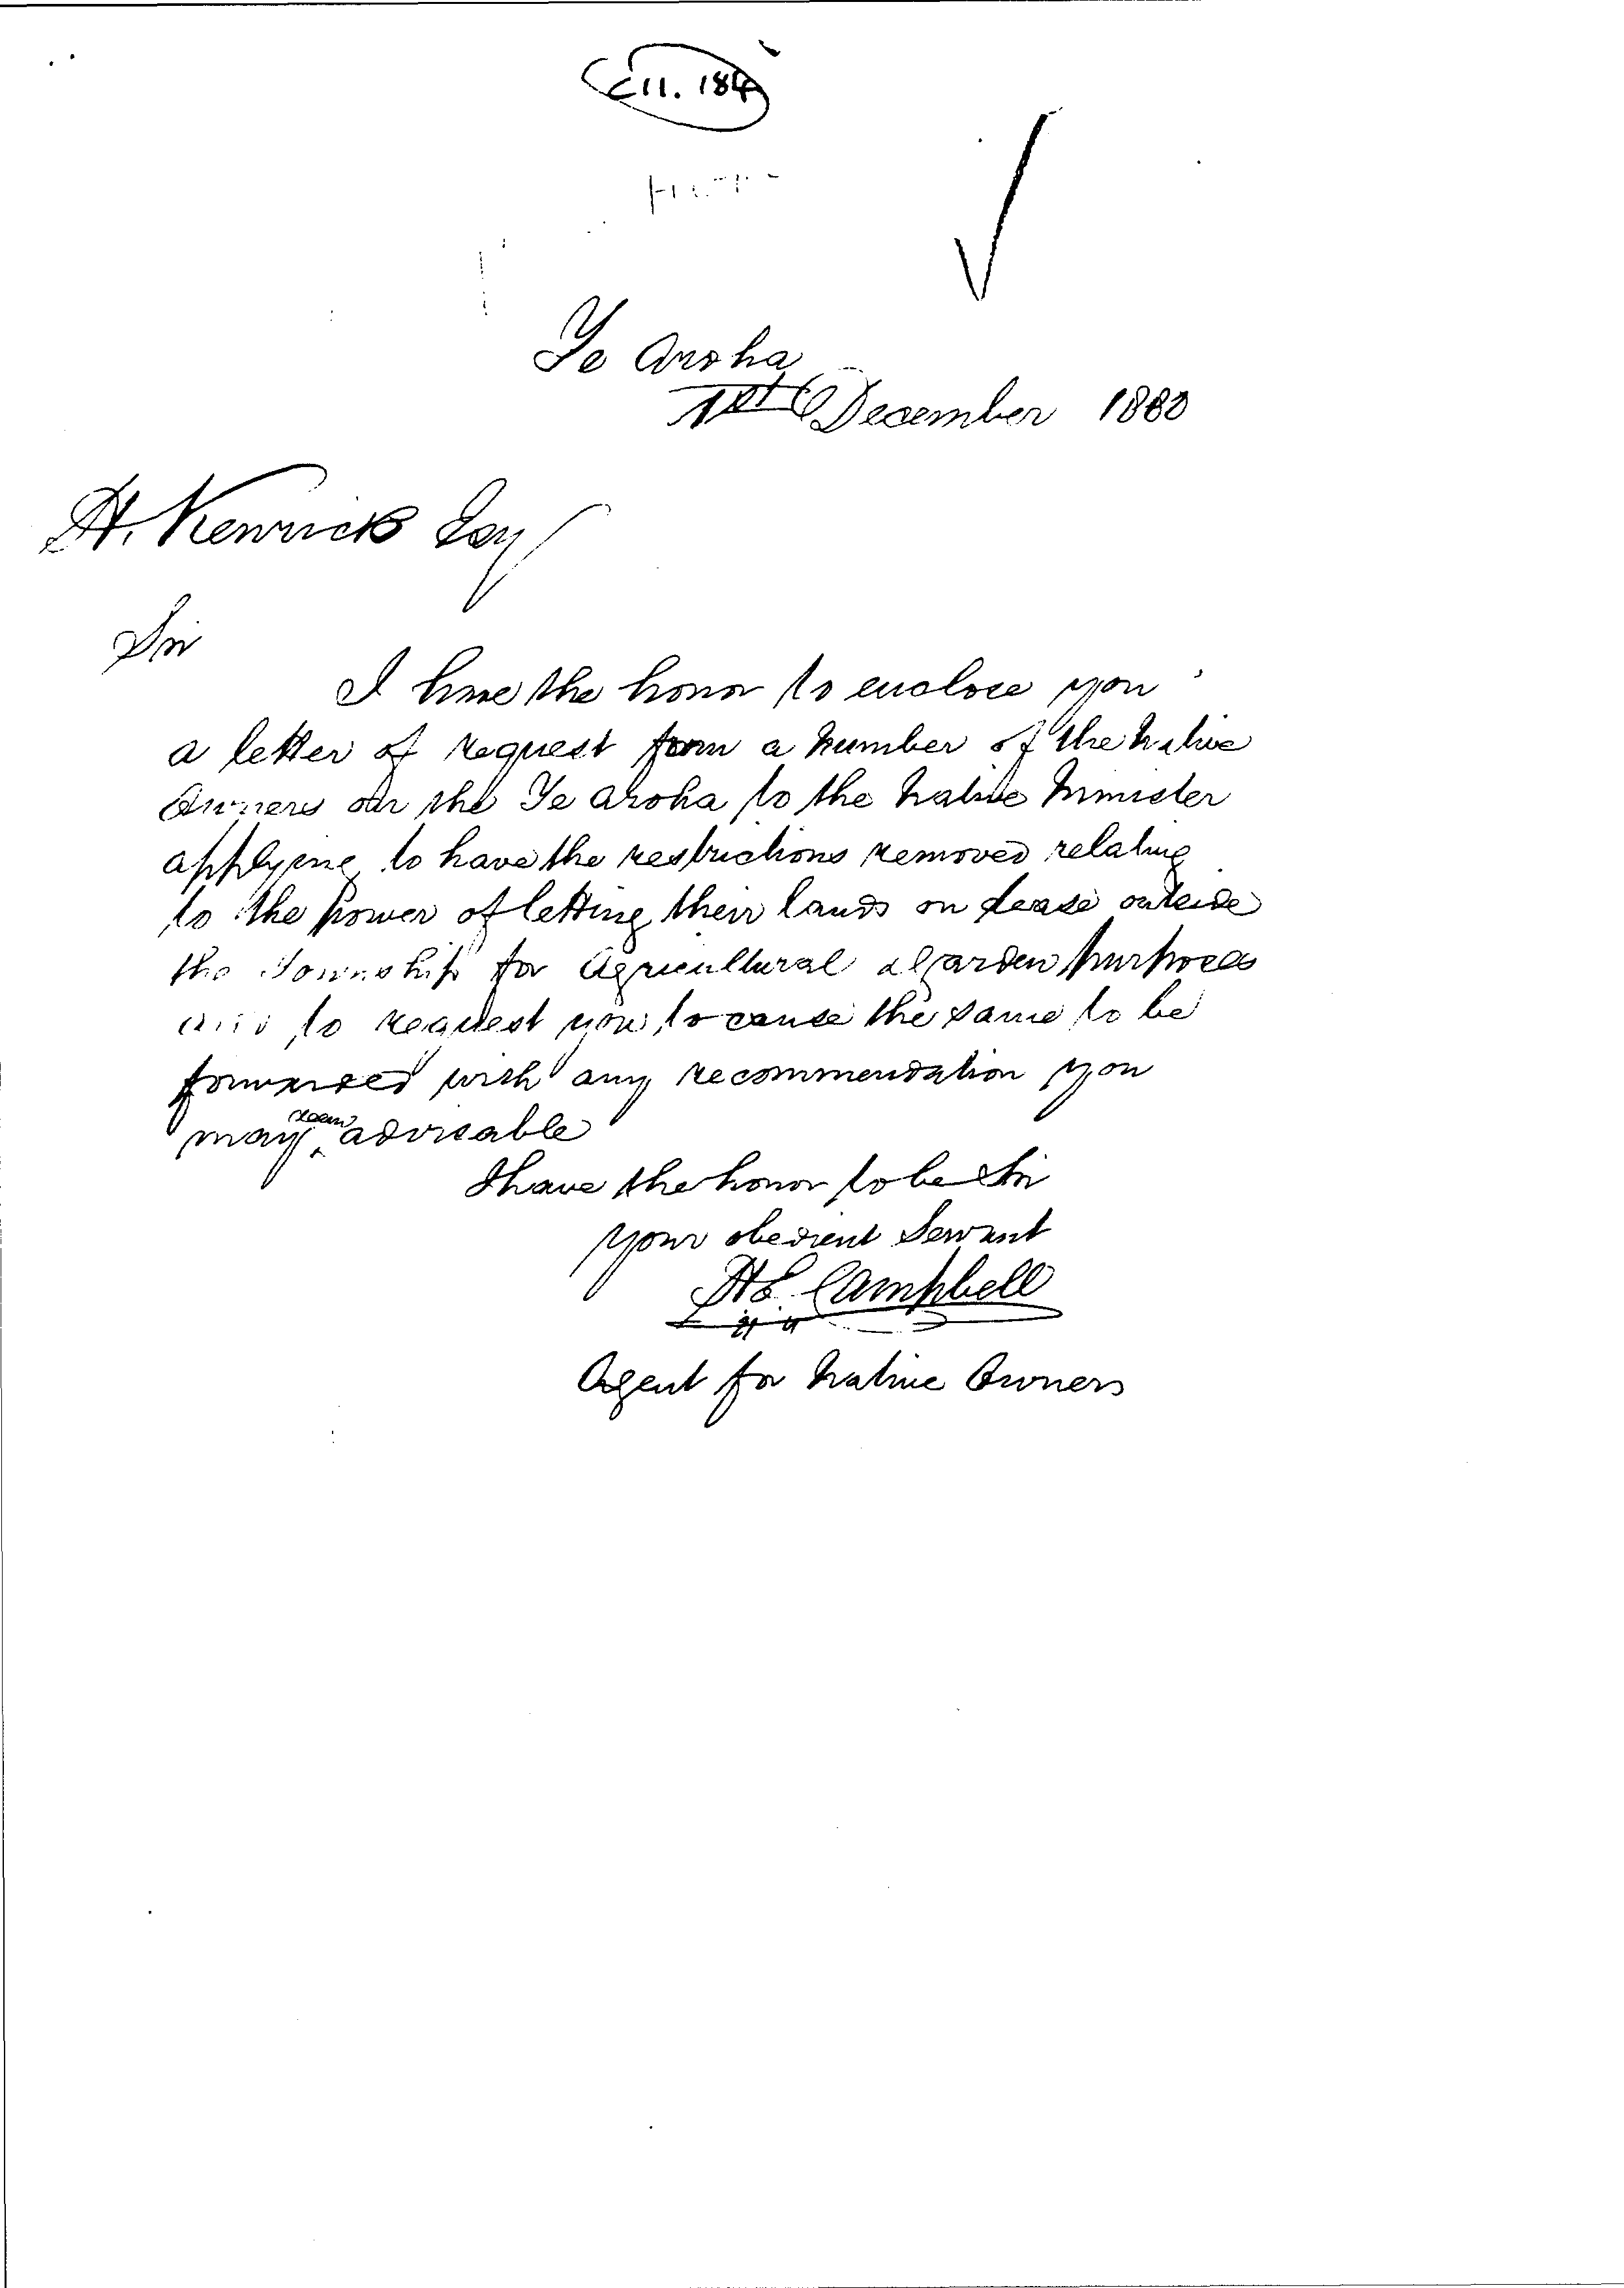 Te Aroha
December 1880
H. Kenrick Esq
Sir
I have the honor to enclose you
a letter of request from a number of the Native
Owners on the Te Aroha to the Native Minister
applying to have the restrictions removed relating
to the power of letting their lands on lease outside
the Township for Agricultural & Garden purposes
and to request you to cause the same to be
forwarded with any recommendation you
may deem advisable
I have the honor to be Sir
your obedient Servant
Campbell
Agent for Native Owners